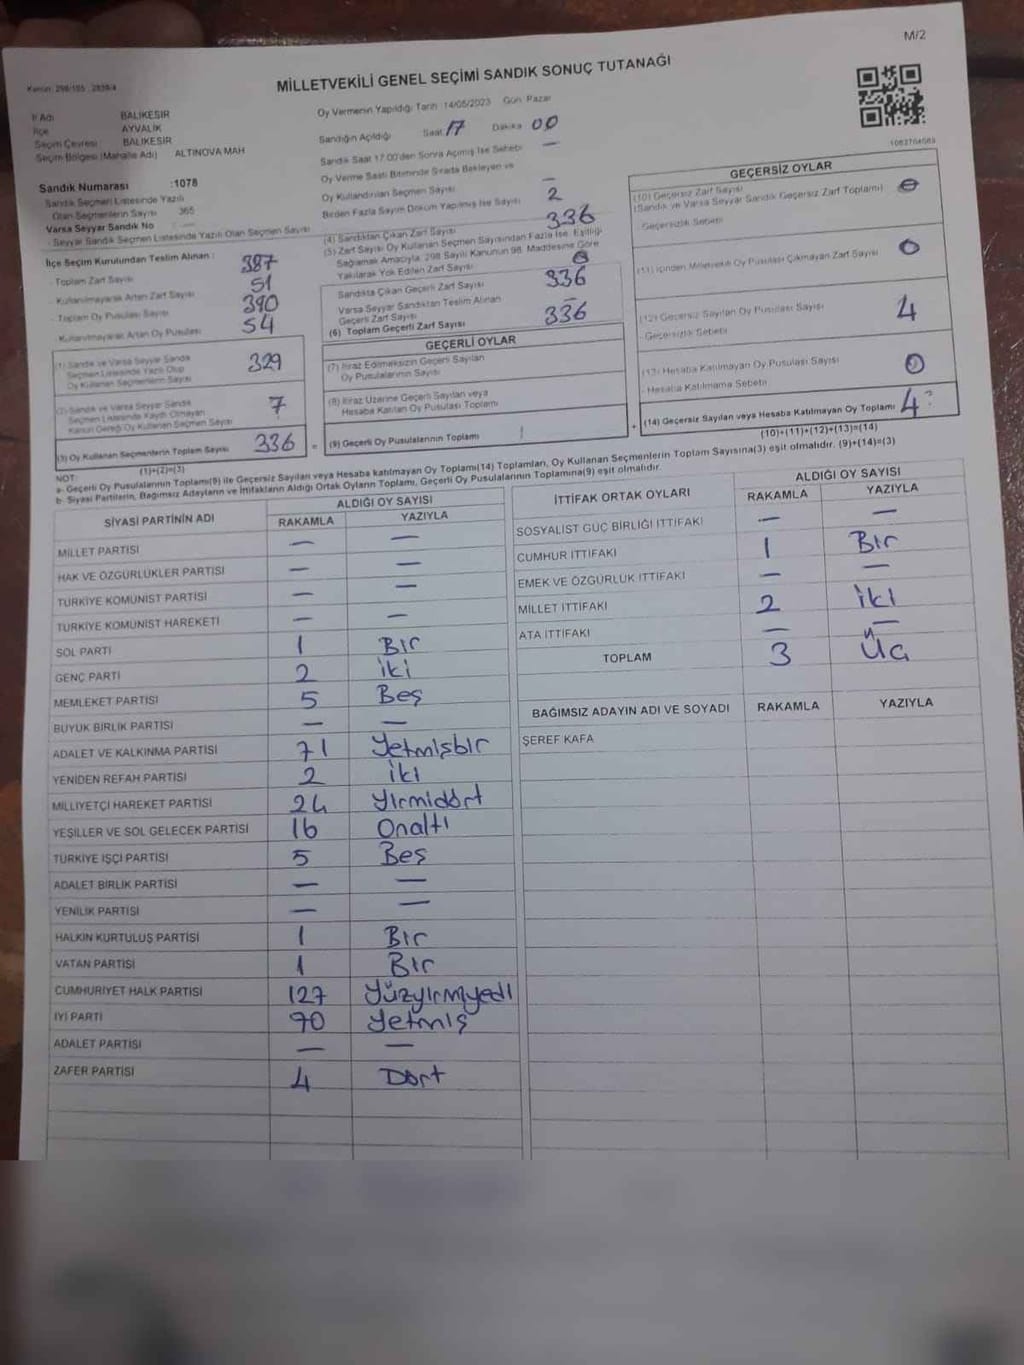 M/2
Kanun: 298/105 , 2839/4
MİLLETVEKİLİ GENEL SEÇİMİ SANDIK SONUÇ TUTANAĞI
İl Adı BALIKESİR
İlçe AYVALIK
Seçim Çevresi : BALIKESİR
Seçim Bölgesi (Mahalle Adı) ALTINOVA MAH
Sandık Numarası :1078
Sandık Seçmen Listesinde Yazılı
Olan Seçmenlerin Sayısı 365
Varsa Seyyar Sandık No
- Seyyar Sandık Seçmen Listesinde Yazılı Olan Seçmen Sayısı
Oy Vermenin Yapıldığı Tarih :14/05/2023 Gün: Pazar
Sandığın Açıldığı Saat 17 Dakika 00
Sandık Saat 17.00'den Sonra Açılmış İse Sebebi —
Oy Verme Saati Bitiminde Sırada Bekleyen ve
Oy Kullandırılan Seçmen Sayısı —
Birden Fazla Sayım Döküm Yapılmış İse Sayısı 2
İlçe Seçim Kurulundan Teslim Alınan :
- Toplam Zarf Sayısı 387
- Kullanılmayarak Artan Zarf Sayısı 51
- Toplam Oy Pusulası Sayısı 390
- Kullanılmayarak Artan Oy Pusulası 54
(1) Sandık ve Varsa Seyyar Sandık
Seçmen Listesinde Yazılı Olup
Oy Kullanan Seçmenlerin Sayısı 329
(2) Sandık ve Varsa Seyyar Sandık
Seçmen Listesinde Kaydı Olmayan
Kanun Gereği Oy Kullanan Seçmen Sayısı 7
(3) Oy Kullanan Seçmenlerin Toplam Sayısı 336
(1)+(2)=(3)
(4) Sandıktan Çıkan Zarf Sayısı 336
(5) Zarf Sayısı Oy Kullanan Seçmen Sayısından Fazla İse, Eşitliği
Sağlamak Amacıyla, 298 Sayılı Kanunun 98. Maddesine Göre
Yakılarak Yok Edilen Zarf Sayısı 0
Sandıkta Çıkan Geçerli Zarf Sayısı 336
Varsa Seyyar Sandıktan Teslim Alınan
Geçerli Zarf Sayısı —
(6) Toplam Geçerli Zarf Sayısı 336
GEÇERLİ OYLAR
(7) İtiraz Edilmeksizin Geçerli Sayılan
Oy Pusulalarının Sayısı
(8) İtiraz Üzerine Geçerli Sayılan veya
Hesaba Katılan Oy Pusulası Toplamı
= (9) Geçerli Oy Pusulalarının Toplamı
1083704083
GEÇERSİZ OYLAR
(10) Geçersiz Zarf Sayısı
(Sandık ve Varsa Seyyar Sandık Geçersiz Zarf Toplamı) 0
- Geçersizlik Sebebi
(11) İçinden Milletvekili Oy Pusulası Çıkmayan Zarf Sayısı 0
(12) Geçersiz Sayılan Oy Pusulası Sayısı 4
- Geçersizlik Sebebi
(13) Hesaba Katılmayan Oy Pusulası Sayısı 0
- Hesaba Katılmama Sebebi
+ (14) Geçersiz Sayılan veya Hesaba Katılmayan Oy Toplamı 4
(10)+(11)+(12)+(13)=(14)
NOT:
a- Geçerli Oy Pusulalarının Toplamı(9) ile Geçersiz Sayılan veya Hesaba katılmayan Oy Toplamı(14) Toplamları, Oy Kullanan Seçmenlerin Toplam Sayısına(3) eşit olmalıdır. (9)+(14)=(3)
b- Siyasi Partilerin, Bağımsız Adayların ve İttifakların Aldığı Ortak Oyların Toplamı, Geçerli Oy Pusulalarının Toplamına(9) eşit olmalıdır.
SİYASİ PARTİNİN ADI ALDIĞI OY SAYISI
RAKAMLA YAZIYLA
MİLLET PARTİSİ — —
HAK VE ÖZGÜRLÜKLER PARTİSİ — —
TÜRKİYE KOMÜNİST PARTİSİ — —
TÜRKİYE KOMÜNİST HAREKETİ — —
SOL PARTİ 1 Bir
GENÇ PARTİ 2 iki
MEMLEKET PARTİSİ 5 Beş
BÜYÜK BİRLİK PARTİSİ — —
ADALET VE KALKINMA PARTİSİ 71 Yetmişbir
YENİDEN REFAH PARTİSİ 2 iki
MİLLİYETÇİ HAREKET PARTİSİ 24 Yirmidört
YEŞİLLER VE SOL GELECEK PARTİSİ 16 Onaltı
TÜRKİYE İŞÇİ PARTİSİ 5 Beş
ADALET BİRLİK PARTİSİ — —
YENİLİK PARTİSİ — —
HALKIN KURTULUŞ PARTİSİ 1 Bir
VATAN PARTİSİ 1 Bir
CUMHURİYET HALK PARTİSİ 127 Yüzyirmiyedi
İYİ PARTİ 70 Yetmiş
ADALET PARTİSİ — —
ZAFER PARTİSİ 4 Dört
İTTİFAK ORTAK OYLARI ALDIĞI OY SAYISI
RAKAMLA YAZIYLA
SOSYALİST GÜÇ BİRLİĞİ İTTİFAKI — —
CUMHUR İTTİFAKI 1 Bir
EMEK VE ÖZGÜRLÜK İTTİFAKI — —
MİLLET İTTİFAKI 2 iki
ATA İTTİFAKI — —
TOPLAM 3 Üç
BAĞIMSIZ ADAYIN ADI VE SOYADI RAKAMLA YAZIYLA
ŞEREF KAFA